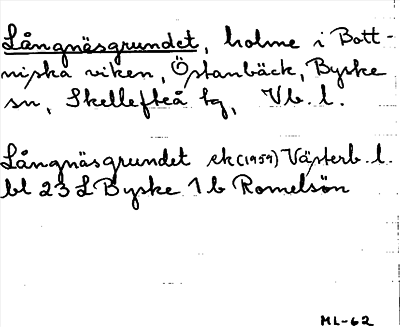 Långnäsgrundet, holme i Bott-
niska viken, Östanbäck, Byske
sn, Skellefteå tg, Vb. l.
Långnäsgrundet ek (1959) Västerb. l.
bl 23 L Byske 1 b Romelsön
ML-62